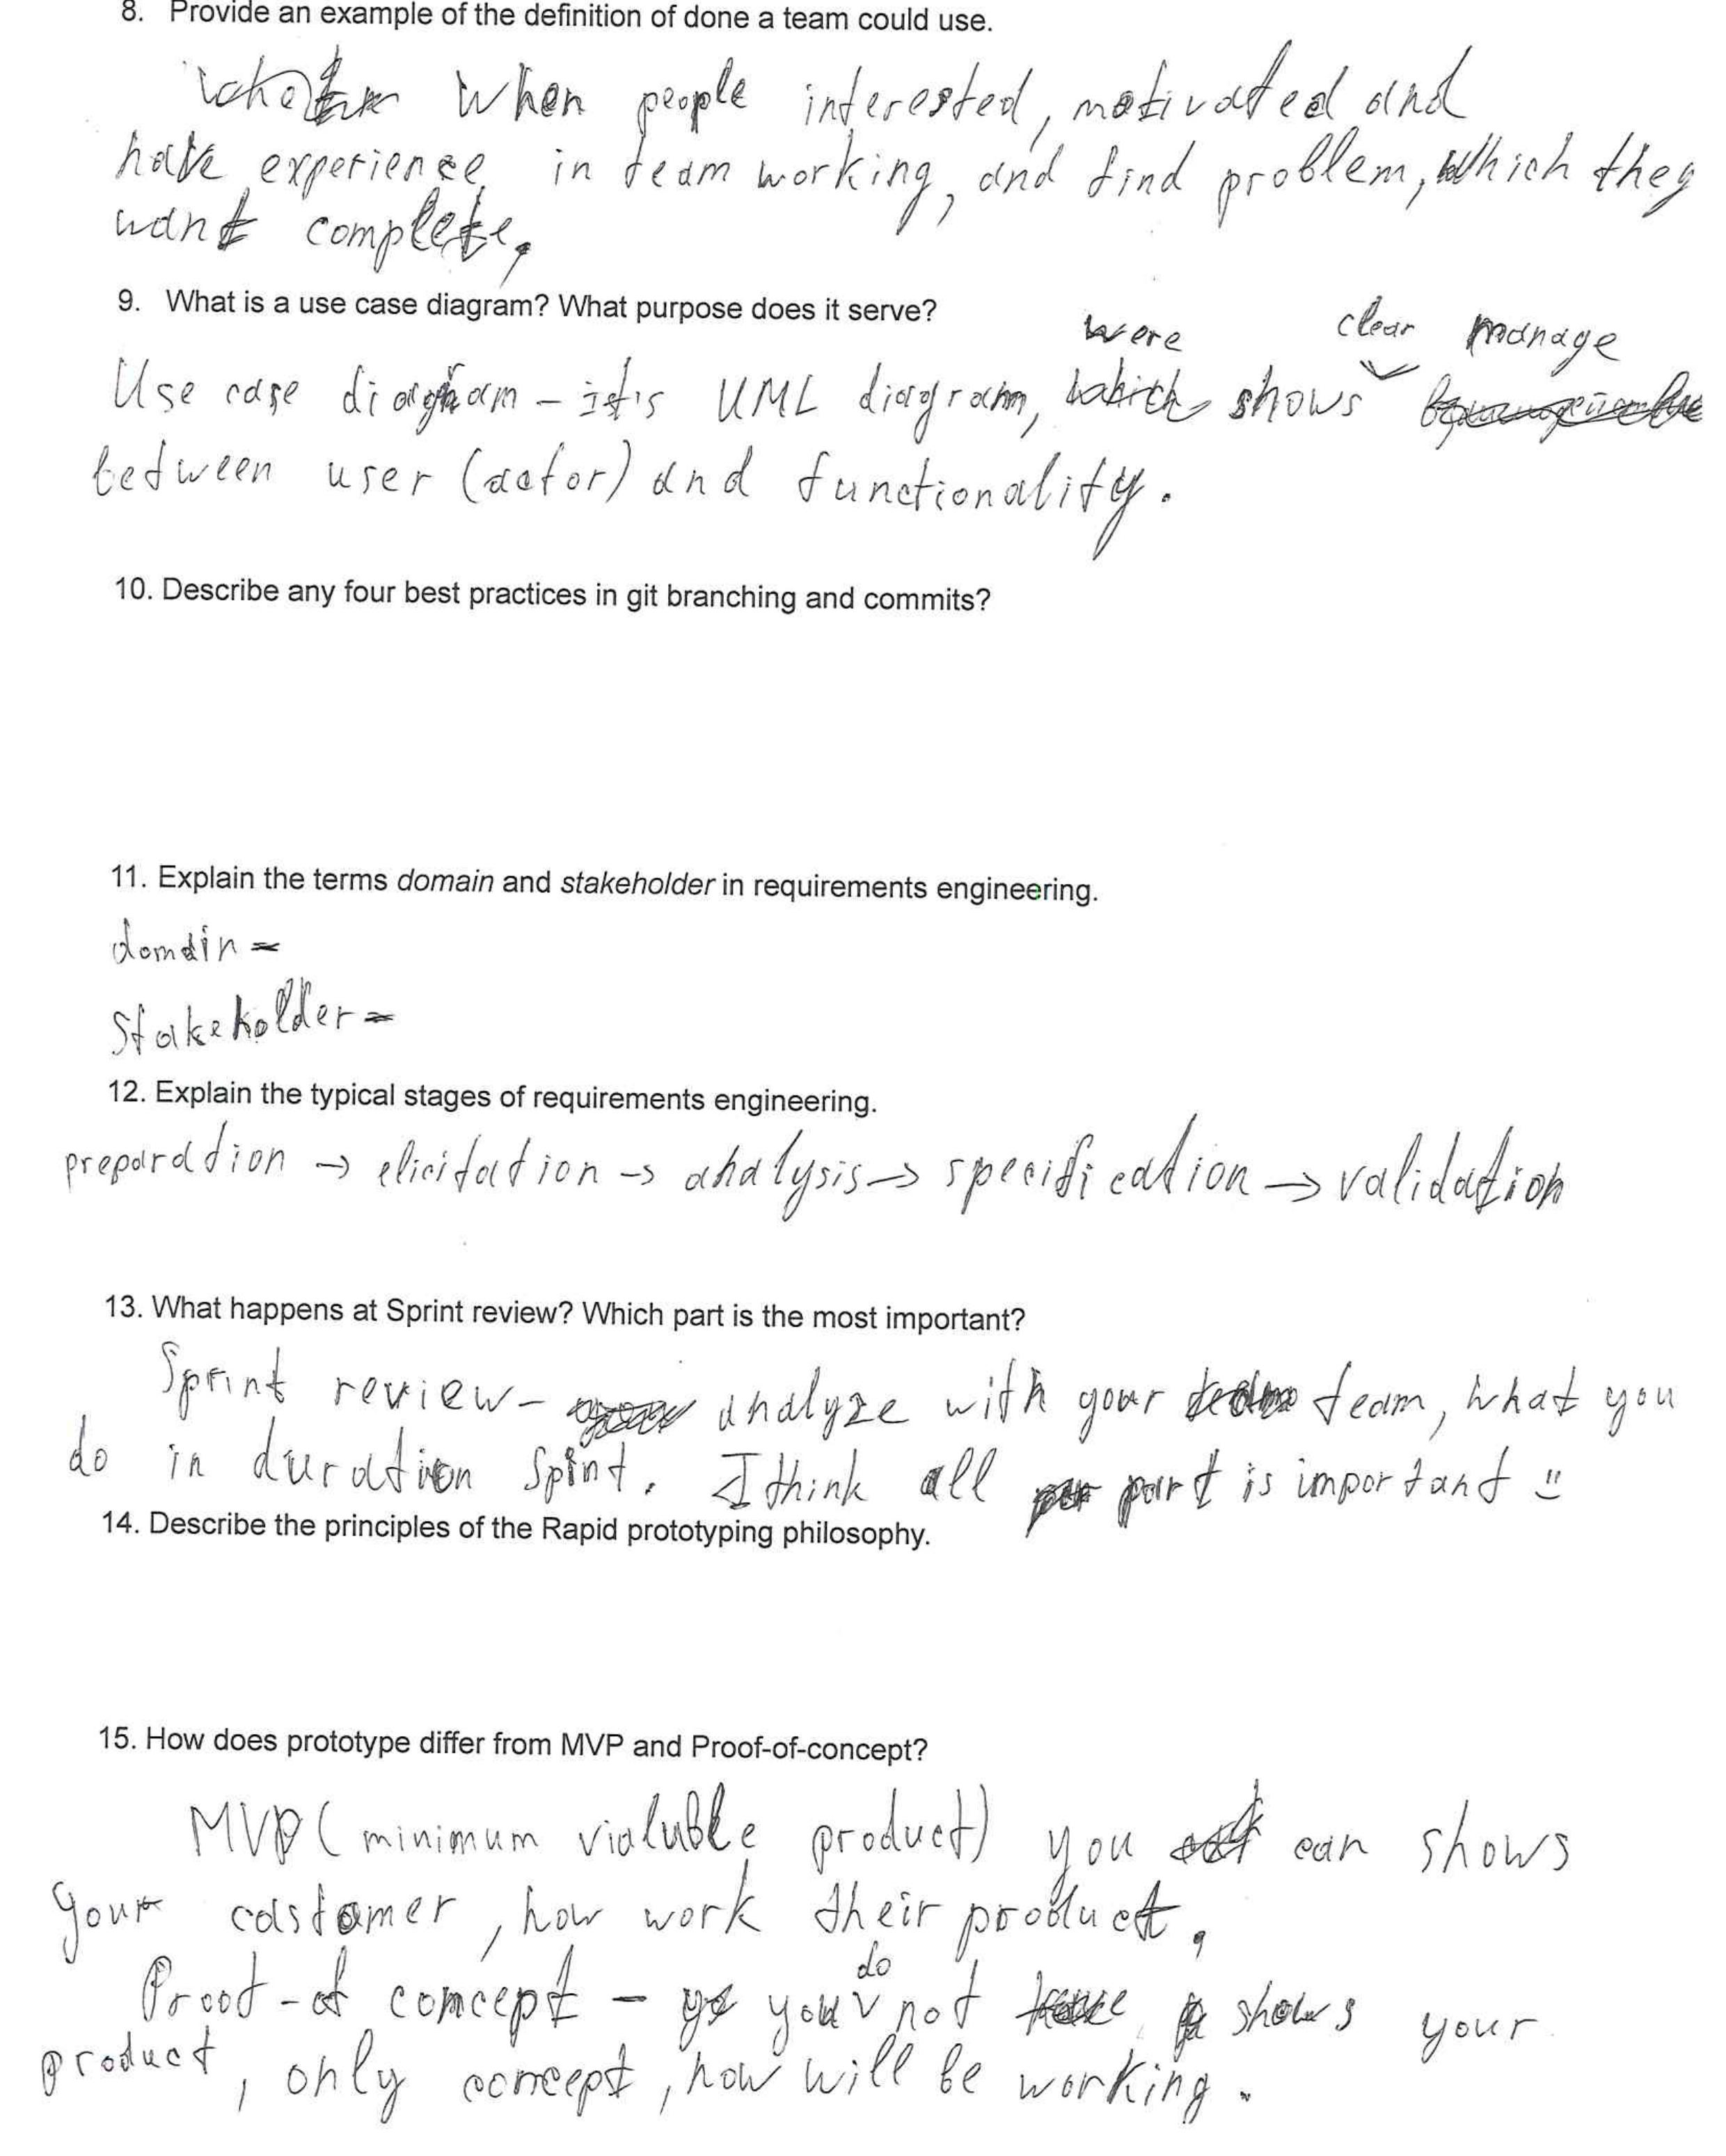 8. Provide an example of the definition of done a team could use.
When people interested, motivated and
have experience in team working, and find problem, which they
want complete.
9. What is a use case diagram? What purpose does it serve?
were clear manage
Use case diagram - it's UML diagram, which shows
between user (actor) and functionality.
10. Describe any four best practices in git branching and commits?
11. Explain the terms domain and stakeholder in requirements engineering.
domain -
Stakeholder -
12. Explain the typical stages of requirements engineering.
preparation → elicitation → analysis → specification → validation
13. What happens at Sprint review? Which part is the most important?
Sprint review - analyze with your team, what you
do in duration Spint. I think all part is important
14. Describe the principles of the Rapid prototyping philosophy.
15. How does prototype differ from MVP and Proof-of-concept?
MVP (minimum vialuble product) you can shows
your costomer, how work their product.
do
Proof-of concept - you not shows your
product, only concept, how will be working.